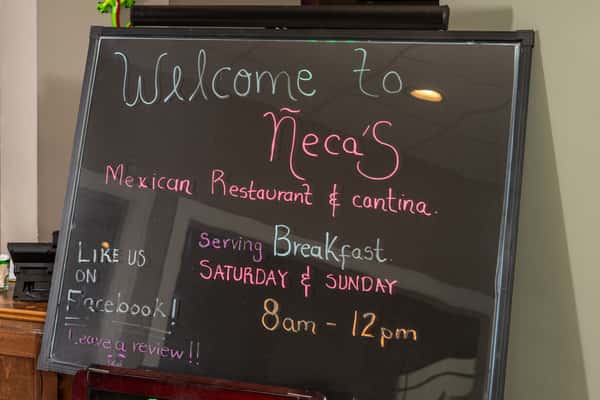 Welcome to
Ñeca's
Mexican Restaurant & cantina.
Serving Breakfast.
SATURDAY & SUNDAY
8am - 12pm
LIKE US
ON
Facebook!
Leave a review!!